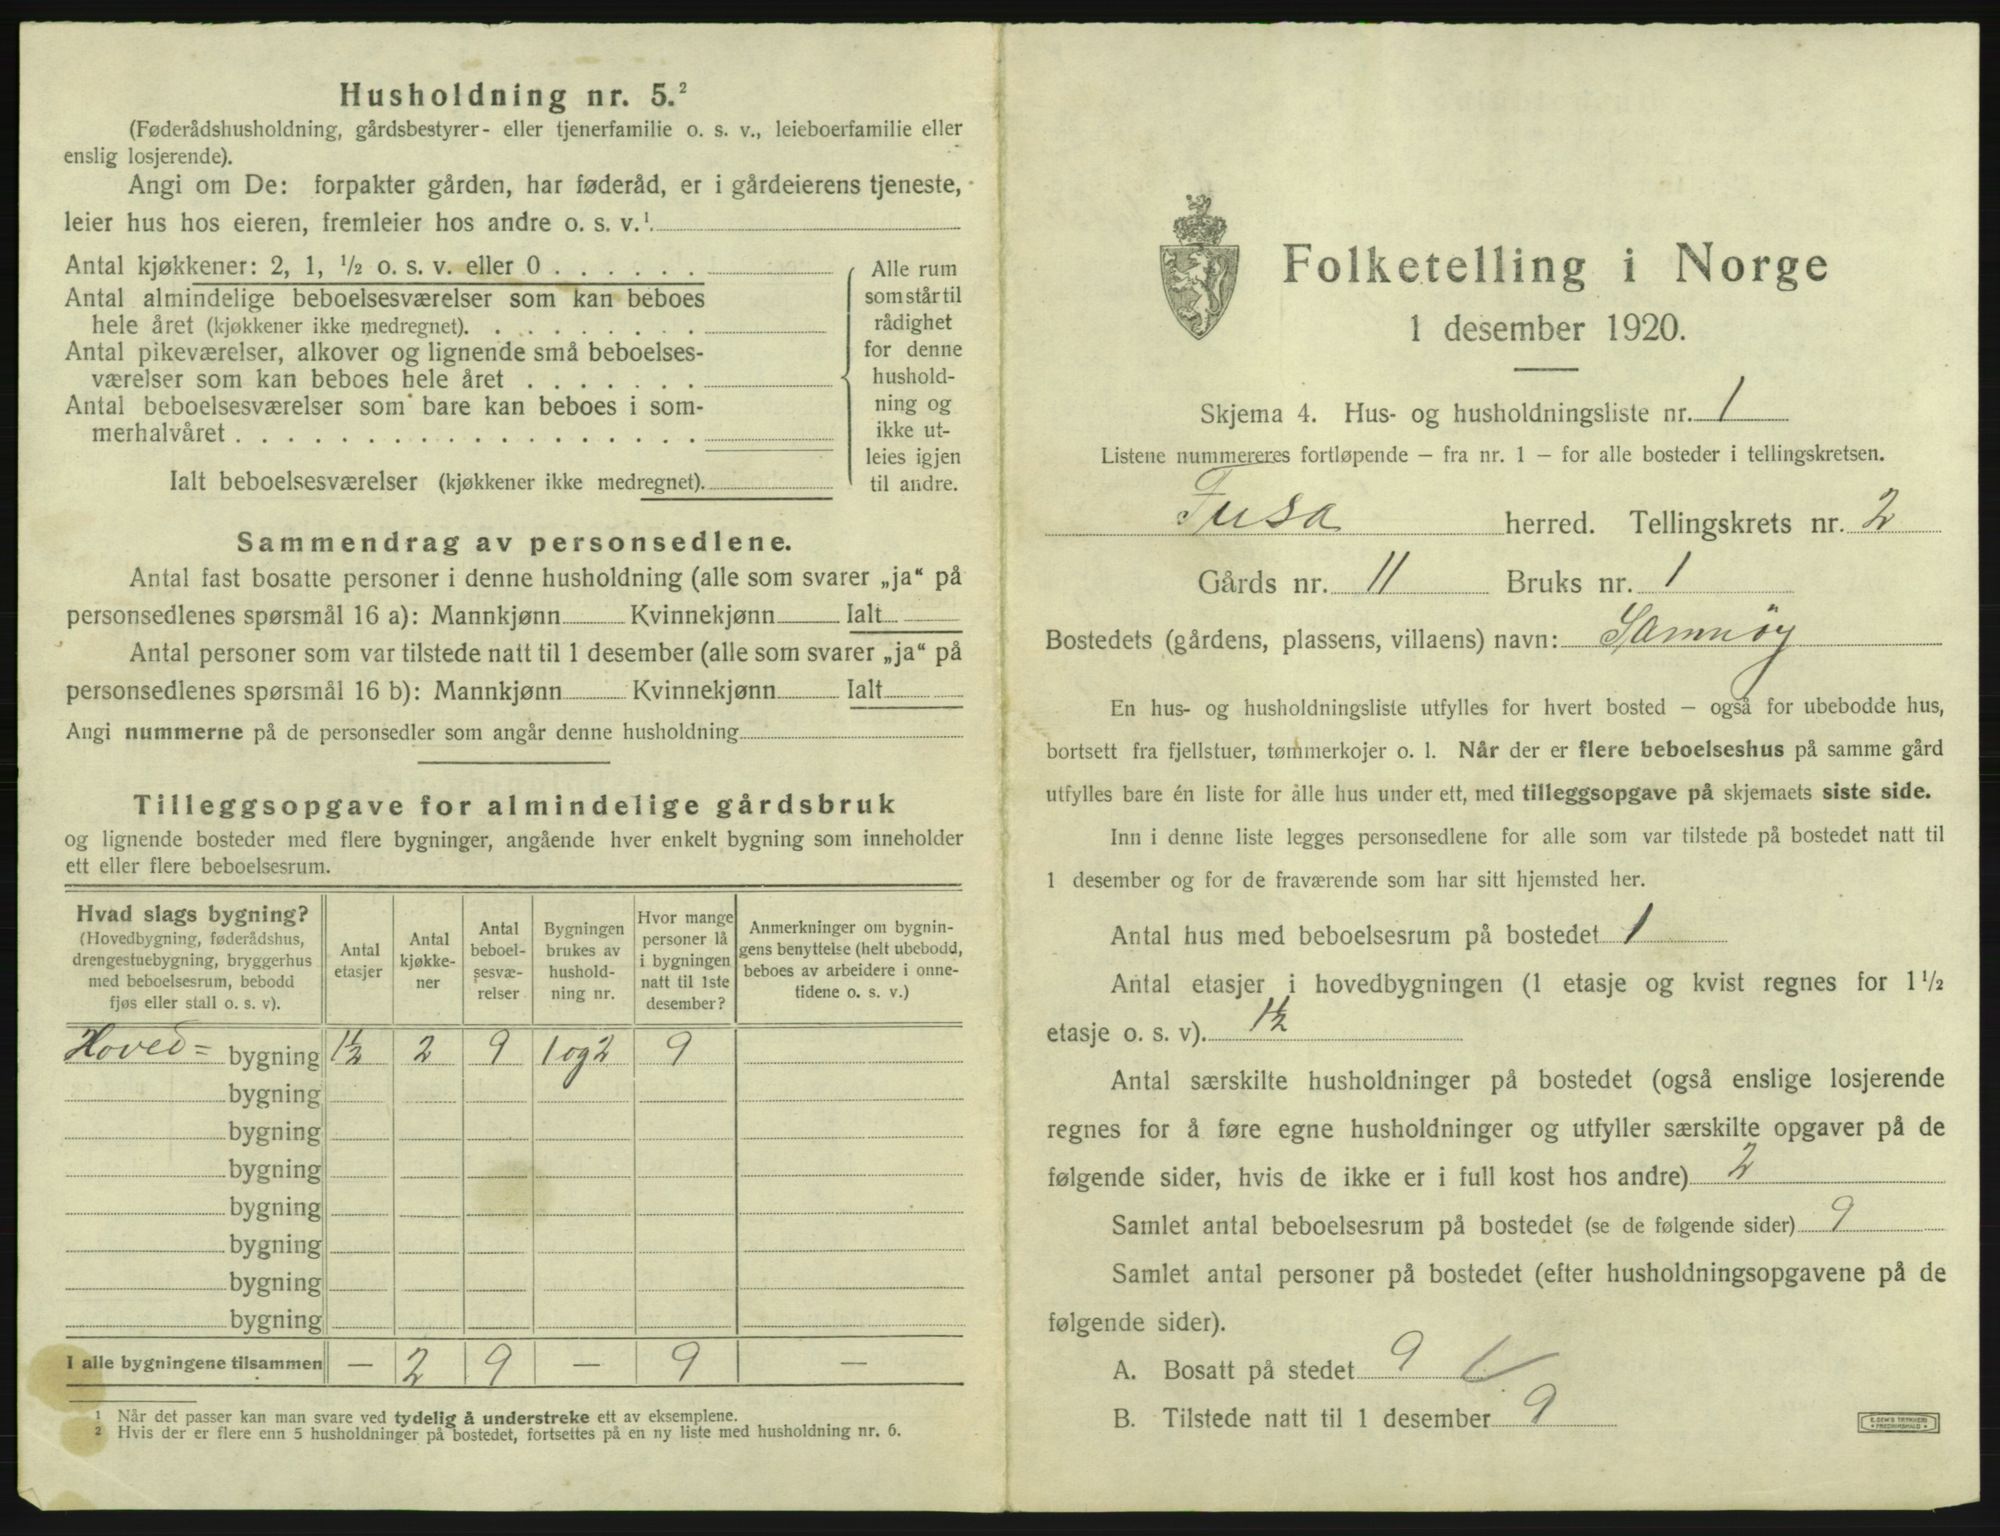 Husholdning nr. 5.²
(Føderådshusholdning, gårdsbestyrer- eller tjenerfamilie o. s. v., leieboerfamilie eller
enslig losjerende).
Angi om De: forpakter gården, har føderåd, er i gårdeierens tjeneste,
leier hus hos eieren, fremleier hos andre o. s. v.¹
Antal kjøkkener: 2, 1, ½ o. s. v. eller 0 . . . . . .
Antal almindelige beboelsesværelser som kan beboes
hele året (kjøkkener ikke medregnet). . . . . . . . .
Antal pikeværelser, alkover og lignende små beboelses-
værelser som kan beboes hele året . . . . . . .
Antal beboelsesværelser som bare kan beboes i som-
merhalvåret . . . . . . . . . . . . . . . . . .
Ialt beboelsesværelser (kjøkkener ikke medregnet).
Alle rum
som står til
rådighet
for denne
hushold-
ning og
ikke ut-
leies igjen
til andre.
Sammendrag av personsedlene.
Antal fast bosatte personer i denne husholdning (alle som svarer „ja“ på
personsedlenes spørsmål 16 a): Mannkjønn Kvinnekjønn Ialt
Antal personer som var tilstede natt til 1 desember (alle som svarer „ja“ på
personsedlenes spørsmål 16 b): Mannkjønn Kvinnekjønn Ialt
Angi nummerne på de personsedler som angår denne husholdning
Tilleggsopgave for almindelige gårdsbruk
og lignende bosteder med flere bygninger, angående hver enkelt bygning som inneholder
ett eller flere beboelsesrum.
Hvad slags bygning?
(Hovedbygning, føderådshus,
drengestuebygning, bryggerhus
med beboelsesrum, bebodd
fjøs eller stall o. s. v).
Antal
etasjer
Antal
kjøkke-
ner
Antal
beboel-
sesvæ-
relser
Bygningen
brukes av
hushold-
ning nr.
Hvor mange
personer lå
i bygningen
natt til 1ste
desember?
Anmerkninger om bygnin-
gens benyttelse (helt ubebodd,
beboes av arbeidere i onne-
tidene o. s. v.)
Hoved= bygning 1½ 2 9 1 og 2 9
bygning
bygning
bygning
bygning
bygning
bygning
bygning
I alle bygningene tilsammen — 2 9 — 9 —
¹ Når det passer kan man svare ved tydelig å understreke ett av eksemplene.
² Hvis der er flere enn 5 husholdninger på bostedet, fortsettes på en ny liste med husholdning nr. 6.
Folketelling i Norge
1 desember 1920.
Skjema 4. Hus- og husholdningsliste nr. 1
Listene nummereres fortløpende – fra nr. 1 – for alle bosteder i tellingskretsen.
Fusa herred. Tellingskrets nr. 2
Gårds nr. 11 Bruks nr. 1
Bostedets (gårdens, plassens, villaens) navn: Samnøy
En hus- og husholdningsliste utfylles for hvert bosted – også for ubebodde hus,
bortsett fra fjellstuer, tømmerkojer o. l. Når der er flere beboelseshus på samme gård
utfylles bare én liste for alle hus under ett, med tilleggsopgave på skjemaets siste side.
Inn i denne liste legges personsedlene for alle som var tilstede på bostedet natt til
1 desember og for de fraværende som har sitt hjemsted her.
Antal hus med beboelsesrum på bostedet 1
Antal etasjer i hovedbygningen (1 etasje og kvist regnes for 1½
etasje o. s. v). 1½
Antal særskilte husholdninger på bostedet (også enslige losjerende
regnes for å føre egne husholdninger og utfyller særskilte opgaver på de
følgende sider, hvis de ikke er i full kost hos andre) 2
Samlet antal beboelsesrum på bostedet (se de følgende sider) 9
Samlet antal personer på bostedet (efter husholdningsopgavene på de
følgende sider).
A. Bosatt på stedet 9
B. Tilstede natt til 1 desember 9